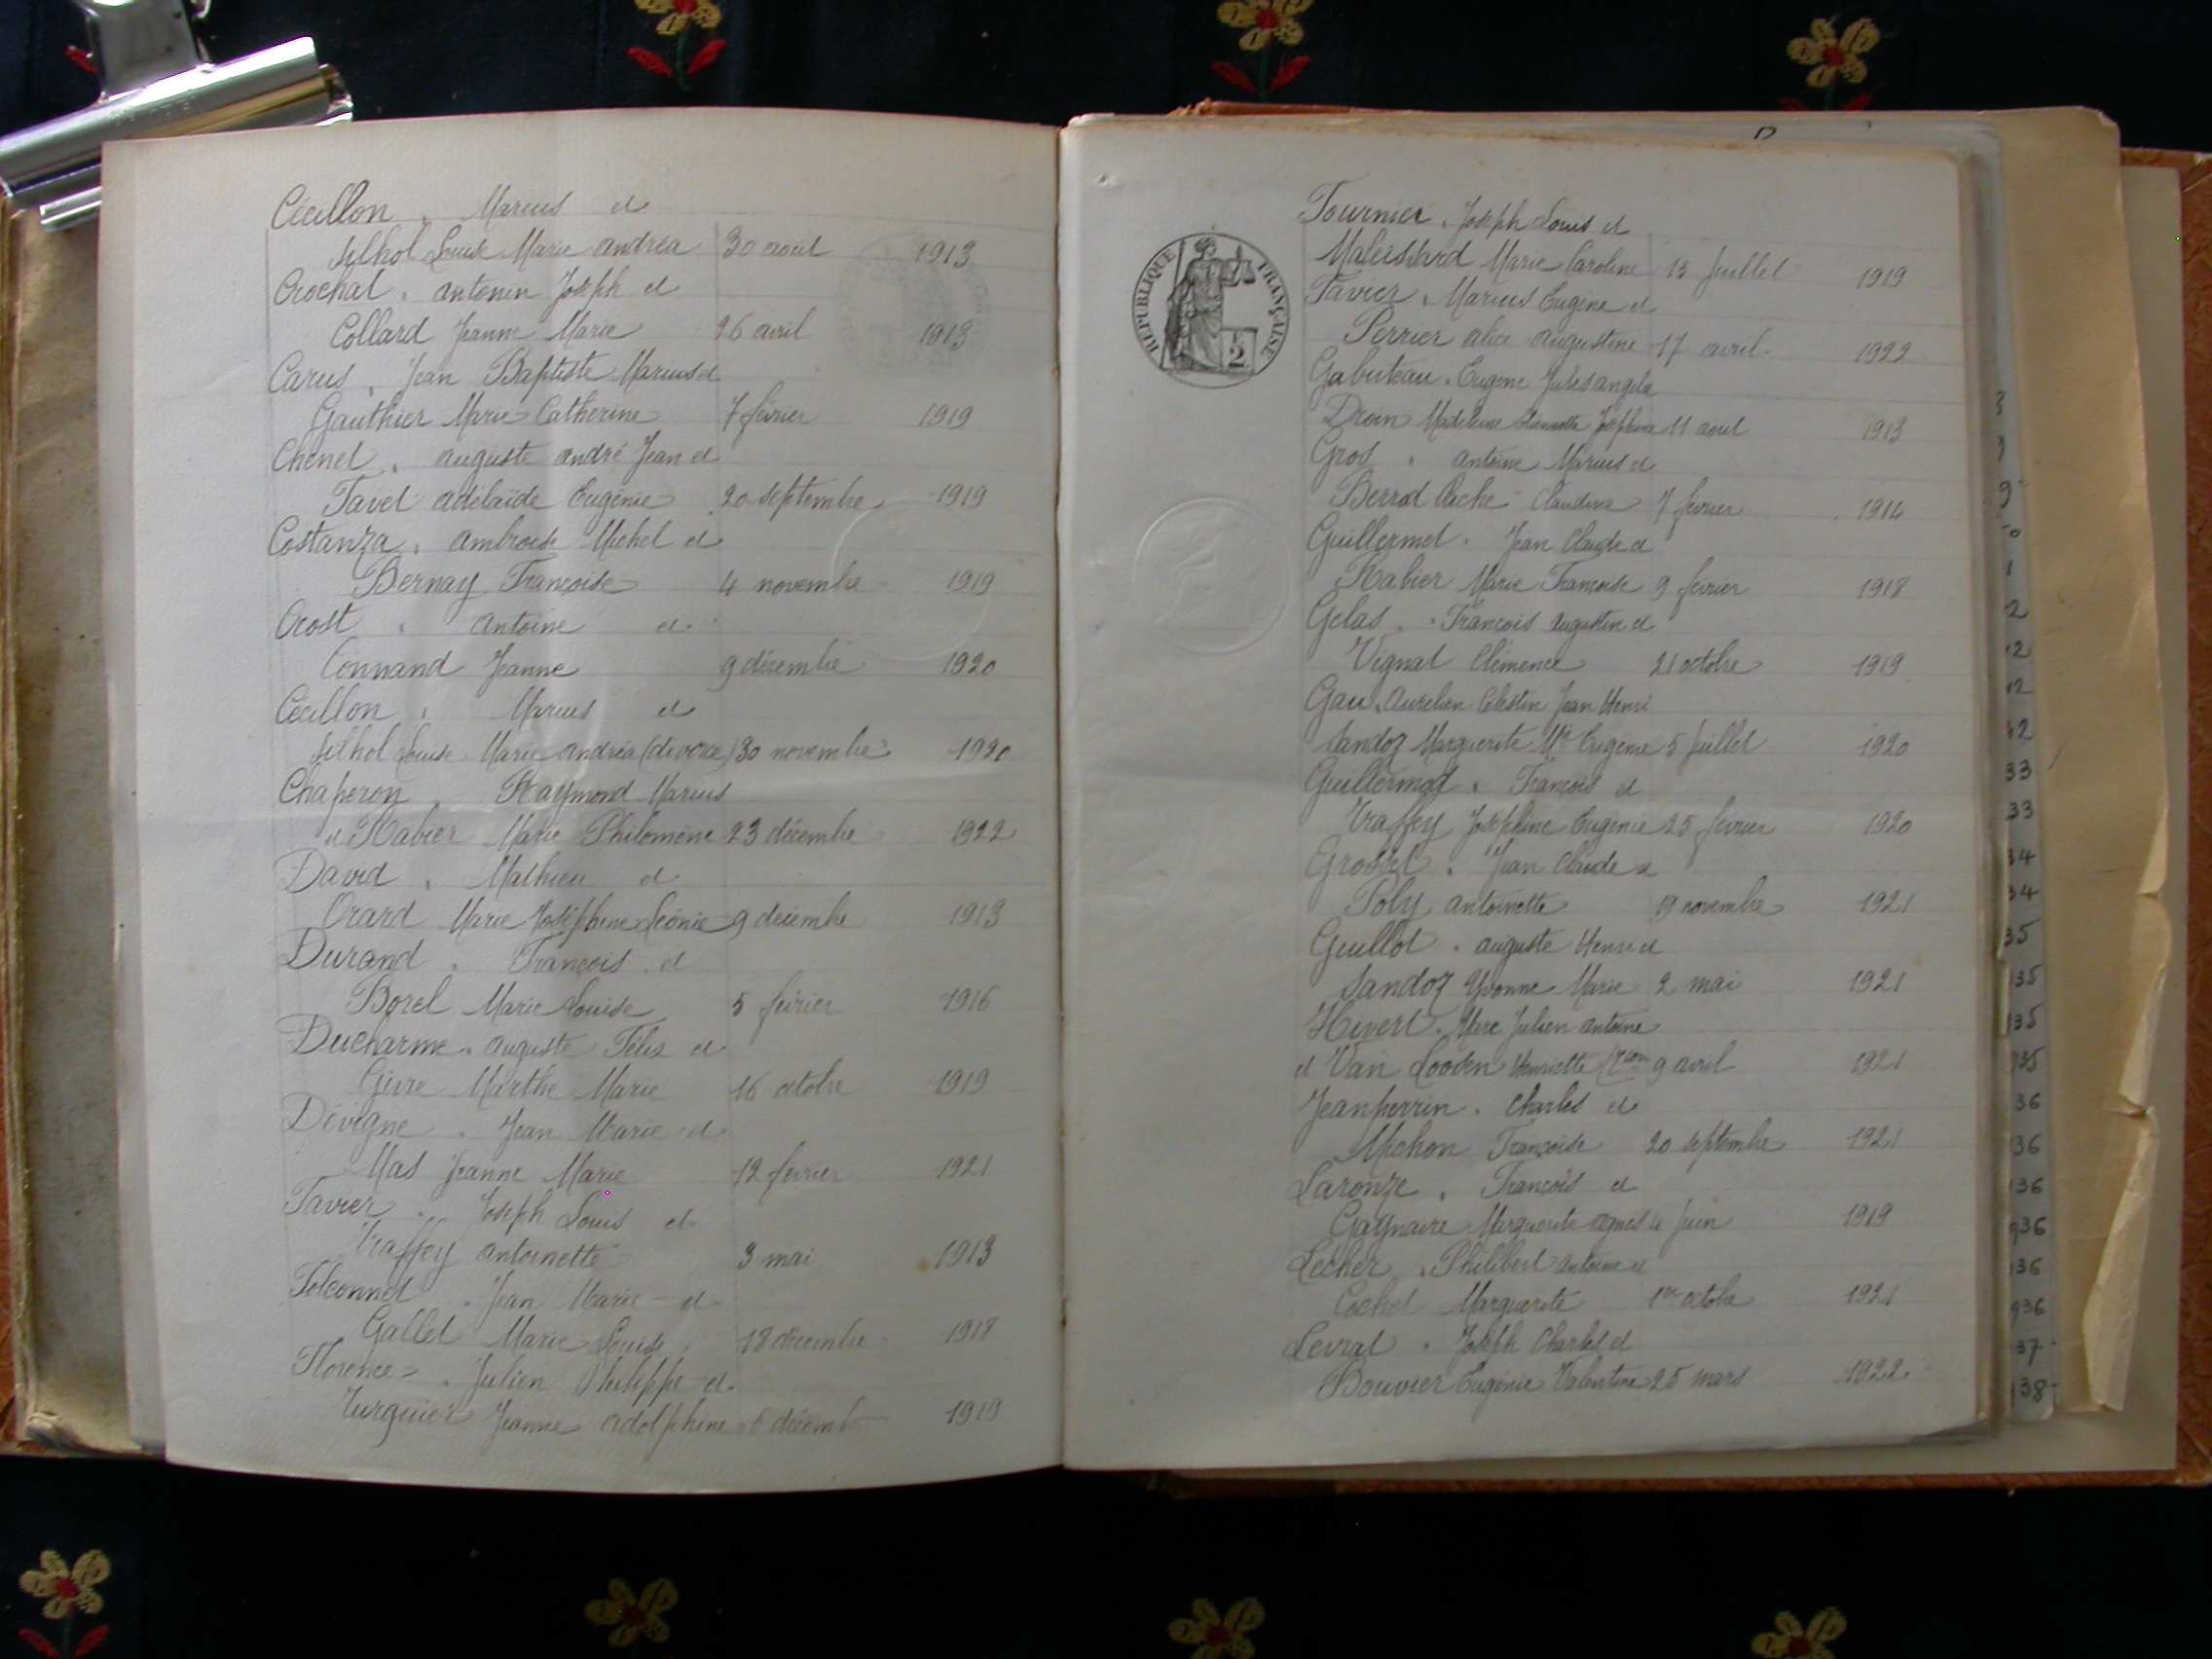 Cécillon. Marius et
Silhol Louise Marie andréa 30 aout 1913
Crochat. antonin Joseph et
Collard Jeanne Marie 26 avril 1913
Carus. Jean Baptiste Marius et
Gauthier Marie Catherine 7 février 1919
Chenet. auguste andré Jean et
Favet adelaïde Eugénie 20 septembre 1919
Costanza. ambroise Michel et
Bernay Françoise 4 novembre 1919
Crost. antoine et
Connand Jeanne 9 décembre 1920
Cécillon. Marius et
Silhol Louise Marie andréa (divorce) 30 novembre 1920
Chaperon. Raymond Marius
et Rabier Marie Philomène 23 décembre 1922
David. Mathieu et
Orard Marie Joséphine Léonie 9 décembre 1913
Durand. François et
Borel Marie Louise 5 février 1916
Ducharme. auguste Félix et
Givre Marthe Marie 16 octobre 1919
Dévigne. Jean Marie et
Mas Jeanne Marie 12 février 1921
Favier. Joseph Louis et
Traffey antoinette 3 mai 1913
Folconnet. Jean Marie et
Gallet Marie Louise 18 décembre 1918
Florence. Julien Philippe et
Turquier Jeanne adolphine 6 décemb 1919
Fournier. Joseph Louis et
Maleissard Marie Caroline 15 Juillet 1919
Favier. Marius Eugène et
Perrier alice augustine 17 avril 1922
Gabuteau. Eugène Jules ange et
Droin Madeleine Joséphine 11 aout 1913
Gros. antoine Marius et
Berrod Claudine 7 février 1914
Guillermet. Jean Claude et
Rabier Marie Françoise 9 février 1918
Gelas. François augustin et
Vignat Clémence 21 octobre 1919
Gau. Aurelien Célestin Jean Henri
Sandoz Marguerite Mie Eugenie 5 Juillet 1920
Guillermet. François et
Traffey Joséphine Eugenie 25 février 1920
Grosset. Jean Claude et
Poly antoinette 19 novembre 1921
Guillot. auguste Henri et
Sandoz Yvonne Marie 2 mai 1921
Hivert. Marc Julien antoine
et Van Looven Henriette 9 avril 1921
Jeanperrin. Charles et
Michon Françoise 20 septembre 1921
Laronze. François et
Gagnaire Marguerite agnes 4 Juin 1919
Lecher. Philibert antoine et
Cochet Marguerite 1er octobre 1921
Levrat. Joseph Charles et
Bouvier Eugénie Valentine 25 mars 1922
REPUBLIQUE FRANÇAISE
2